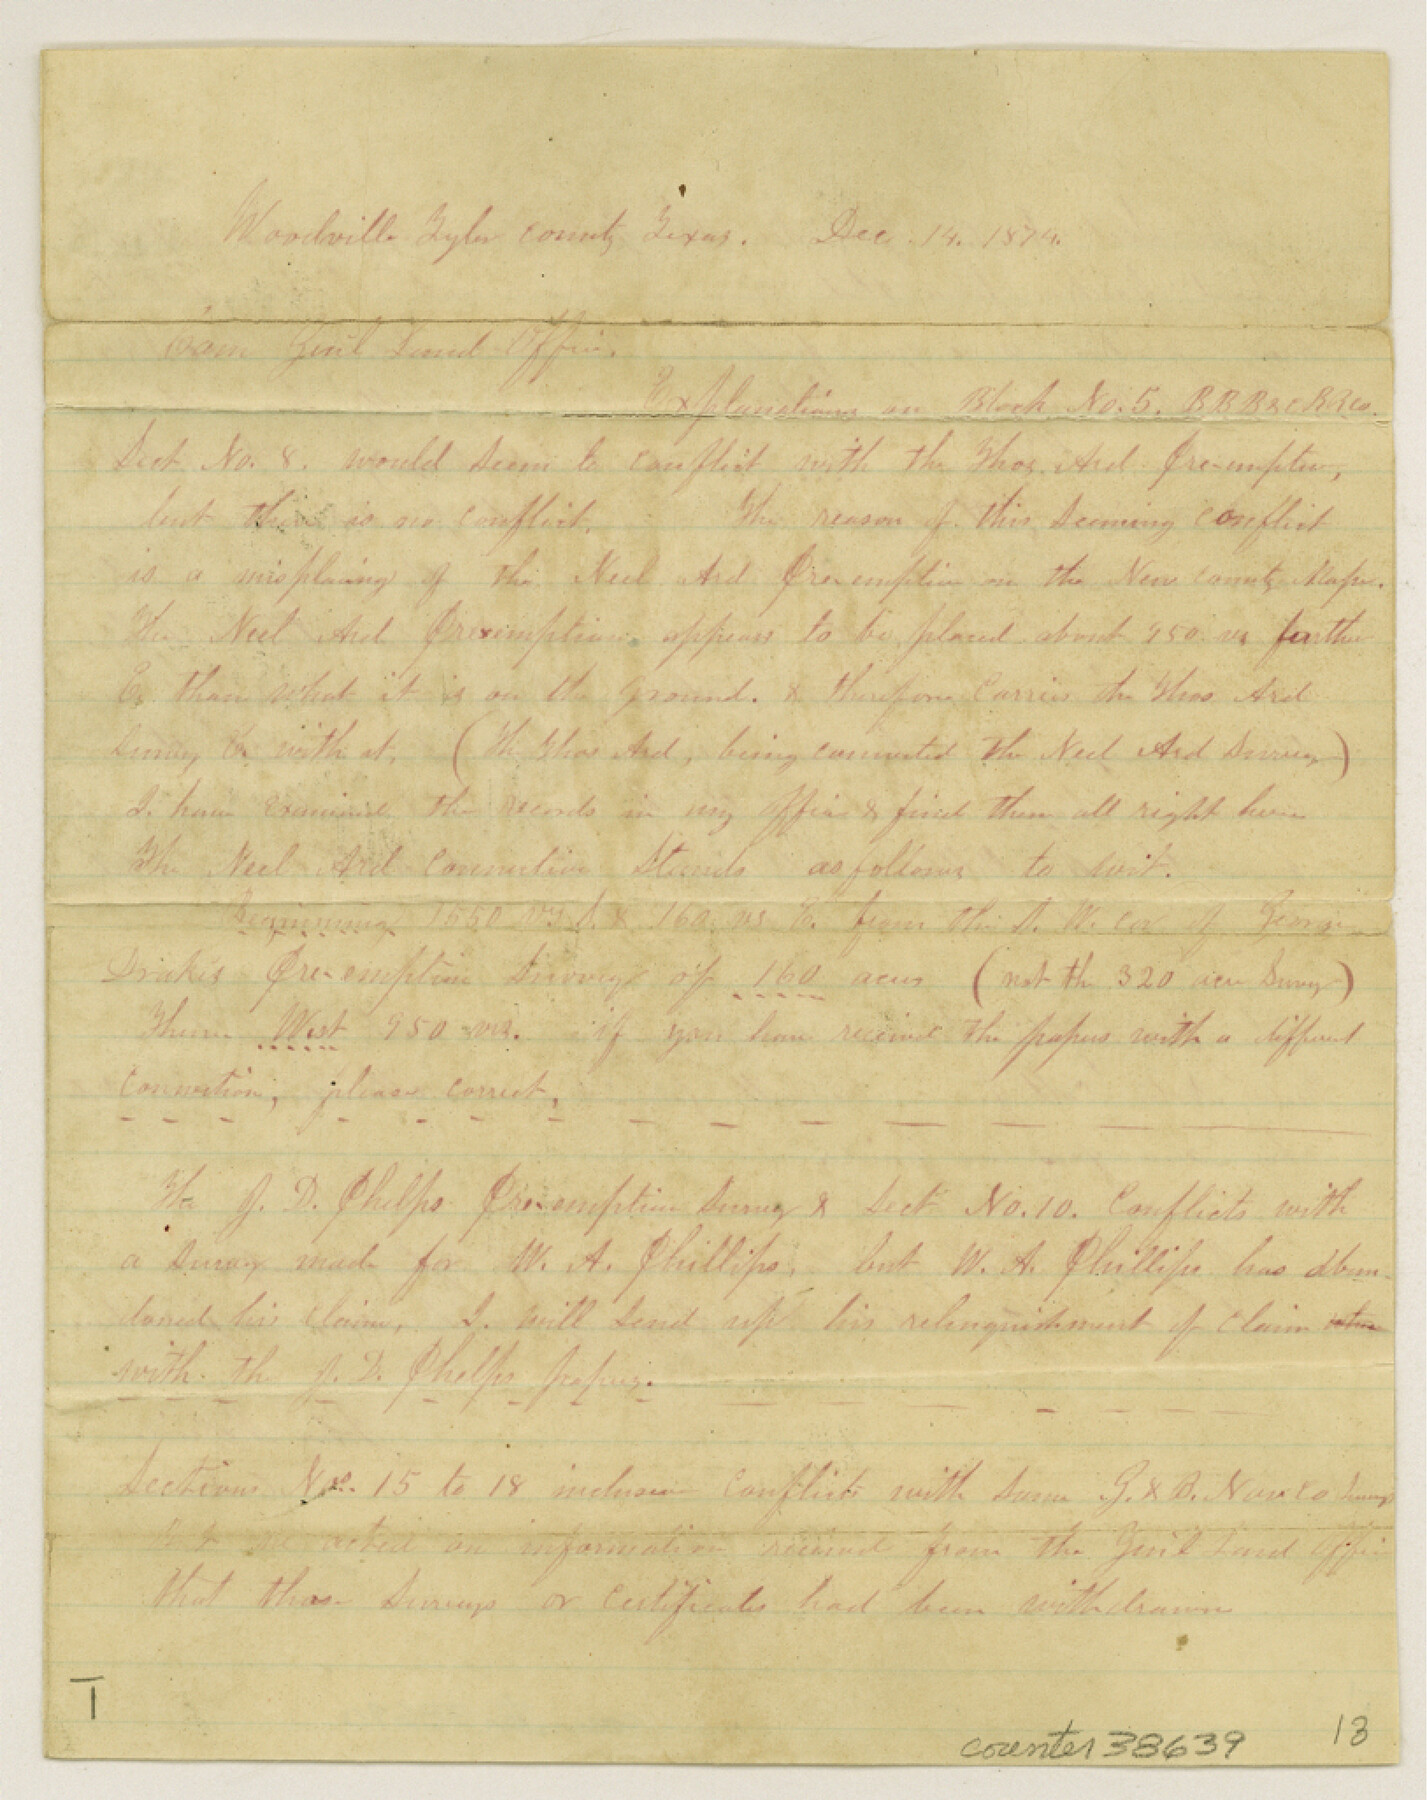 Woodville Tyler County Texas. Dec. 14. 1874.
Com Genl Land Office.
Explanations on Block No. 5. B B B & C R R Co.
Sect. No. 8. would seem to conflict with the Thos. Ard Pre-emption,
but this is no conflict. The reason of this seeming conflict
is a misplacing of the Neel Ard Pre-emption on the New County Map.
The Neel Ard Pre-emption appears to be placed about 950 vs further
E. than what it is on the ground. & therefore carries the Thos Ard
Survey E. with it. (The Thos Ard, being connected the Neel Ard Survey)
I have examined the records in my office & find them all right here
The Neel Ard connection stands as follows to wit.
Beginning 1550 vrs S & 160 vs E. from the S. W. cor of George
Drakes Pre-emption Survey of 160 acres (not the 320 acre Survey)
Thence West 950 vrs. if you have received the papers with a different
connection, please correct,
The J. D. Phelps Pre-emption Survey & Sect No. 10. Conflicts with
a Survey made for W. A. Phillips. but W. A. Phillips has aban-
doned his claim, I. will send up his relinquishment of claim
with the J. D. Phelps papers.
Sections Nos. 15 to 18 inclusive Conflicts with Some G. & B. Nav. Co Surveys
acted on information received from the Genl Land Office
that those Surveys or certificates had been withdrawn
T
counter 38639
13